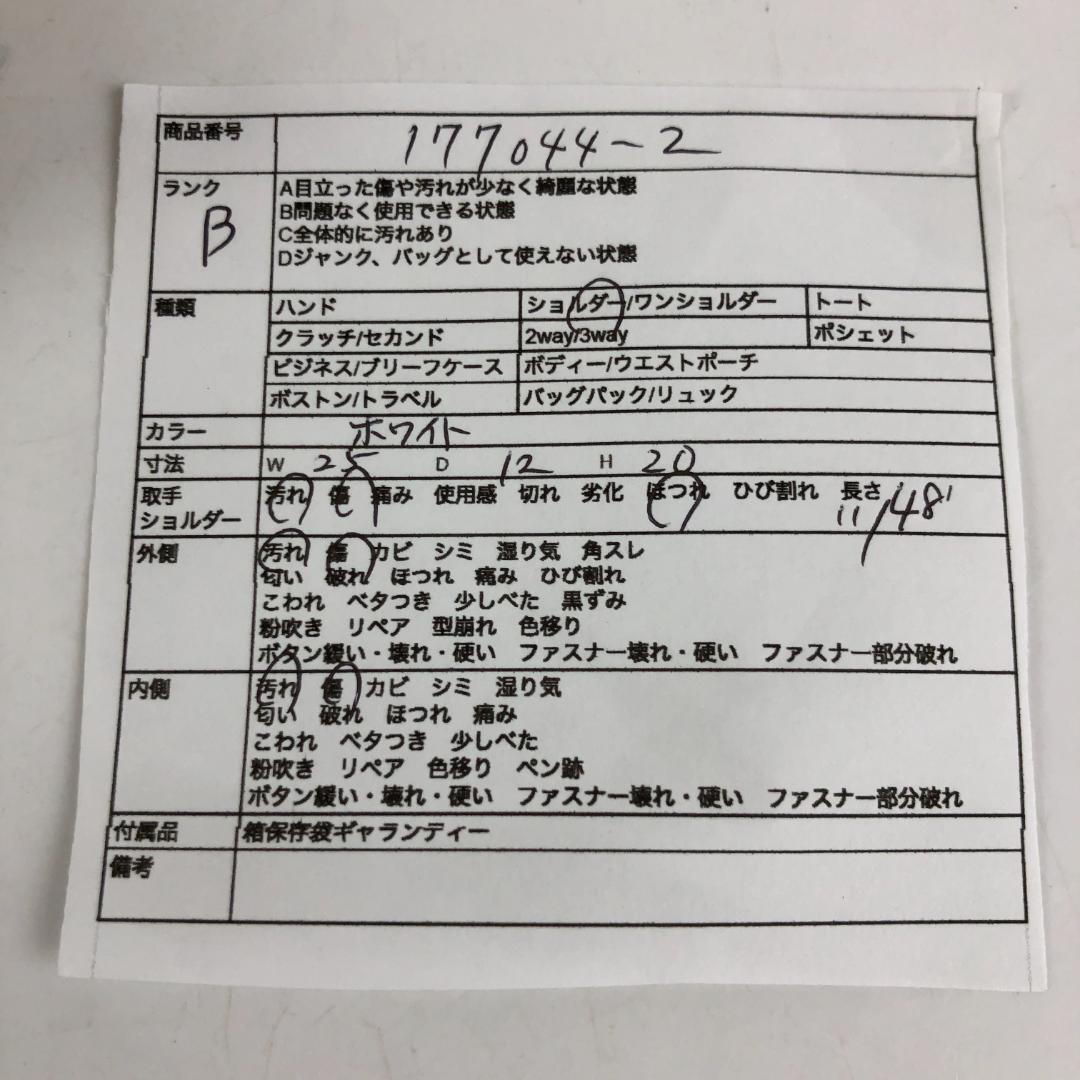 商品番号 177044-2
ランク B
A目立った傷や汚れが少なく綺麗な状態
B問題なく使用できる状態
C全体的に汚れあり
Dジャンク、バッグとして使えない状態
種類 ハンド ショルダー/ワンショルダー トート
クラッチ/セカンド 2way/3way ポシェット
ビジネス/ブリーフケース ボディー/ウエストポーチ
ボストン/トラベル バッグパック/リュック
カラー ホワイト
寸法 W 25 D 12 H 20
取手 汚れ 傷 痛み 使用感 切れ 劣化 ほつれ ひび割れ 長さ
ショルダー 11/48
外側 汚れ 傷 カビ シミ 湿り気 角スレ
匂い 破れ ほつれ 痛み ひび割れ
こわれ ベタつき 少しべた 黒ずみ
粉吹き リペア 型崩れ 色移り
ボタン緩い・壊れ・硬い ファスナー壊れ・硬い ファスナー部分破れ
内側 汚れ 傷 カビ シミ 湿り気
匂い 破れ ほつれ 痛み
こわれ ベタつき 少しべた
粉吹き リペア 色移り ペン跡
ボタン緩い・壊れ・硬い ファスナー壊れ・硬い ファスナー部分破れ
付属品 箱保存袋ギャランティー
備考